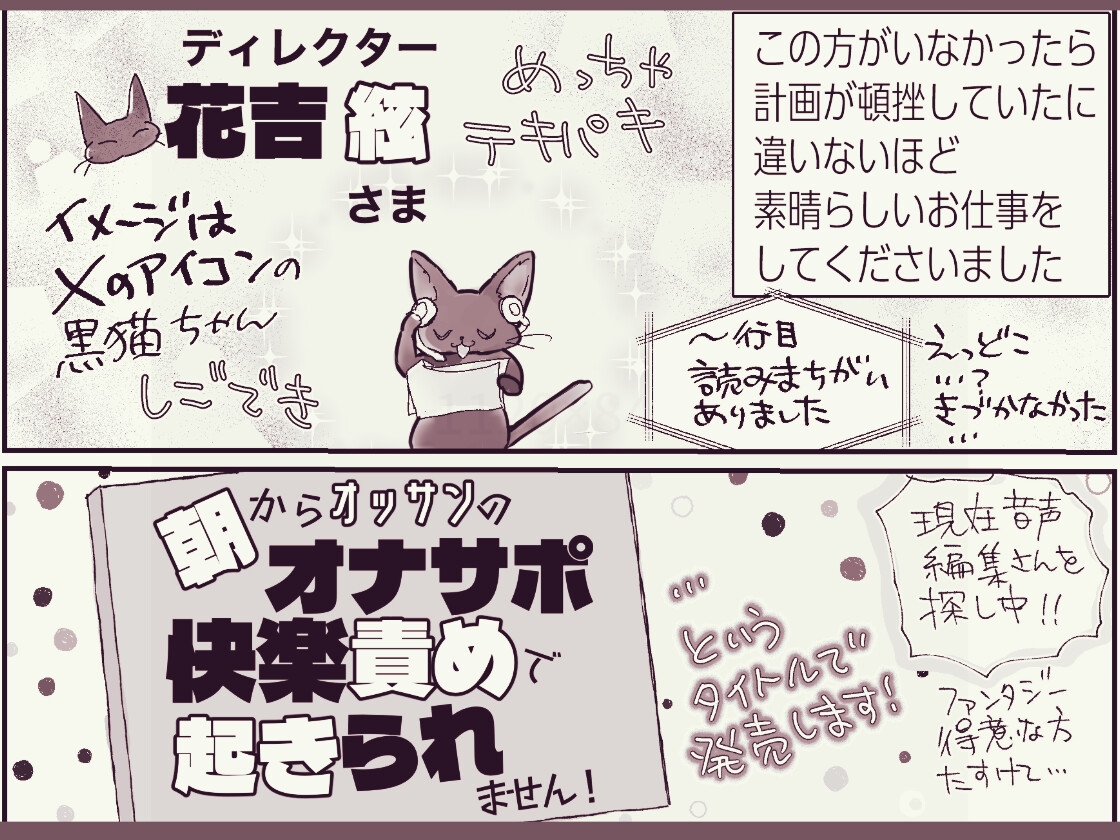 ディレクター
花吉 絃
さま
めっちゃ
テキパキ
この方がいなかったら
計画が頓挫していたに
違いないほど
素晴らしいお仕事を
してくださいました
イメージは
Xのアイコンの
黒猫ちゃん
しごでき
〜行目
読みまちがい
ありました
えっどこ
…?
きづかなかった
…
朝からオッサンの
オナサポ
快楽責めで
起きられ
ません!
…
という
タイトルで
発売します!
現在音声
編集さんを
探し中!!
ファンタジー
得意な方
たすけて…